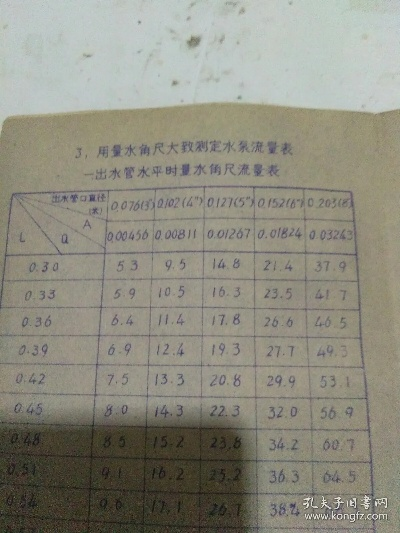 3、用量水角尺大致测定水泵流量表
—出水管水平时量水角尺流量表
出水管口直径(米) 0.076(3") 0.102(4") 0.127(5") 0.152(6") 0.203(8")
L Q A 0.00456 0.00811 0.01267 0.01824 0.03243
0.30 5.3 9.5 14.8 21.4 37.9
0.33 5.9 10.5 16.3 23.5 41.7
0.36 6.4 11.4 17.8 26.6 46.5
0.39 6.9 12.4 19.3 27.7 49.3
0.42 7.5 13.3 20.8 29.9 53.1
0.45 8.0 14.3 22.3 32.0 56.9
0.48 8.5 15.2 23.8 34.2 60.7
0.51 9.1 16.2 25.2 36.3 64.5
0.54 9.6 17.1 26.7 38.4
孔夫子旧书网
www.kongfz.com